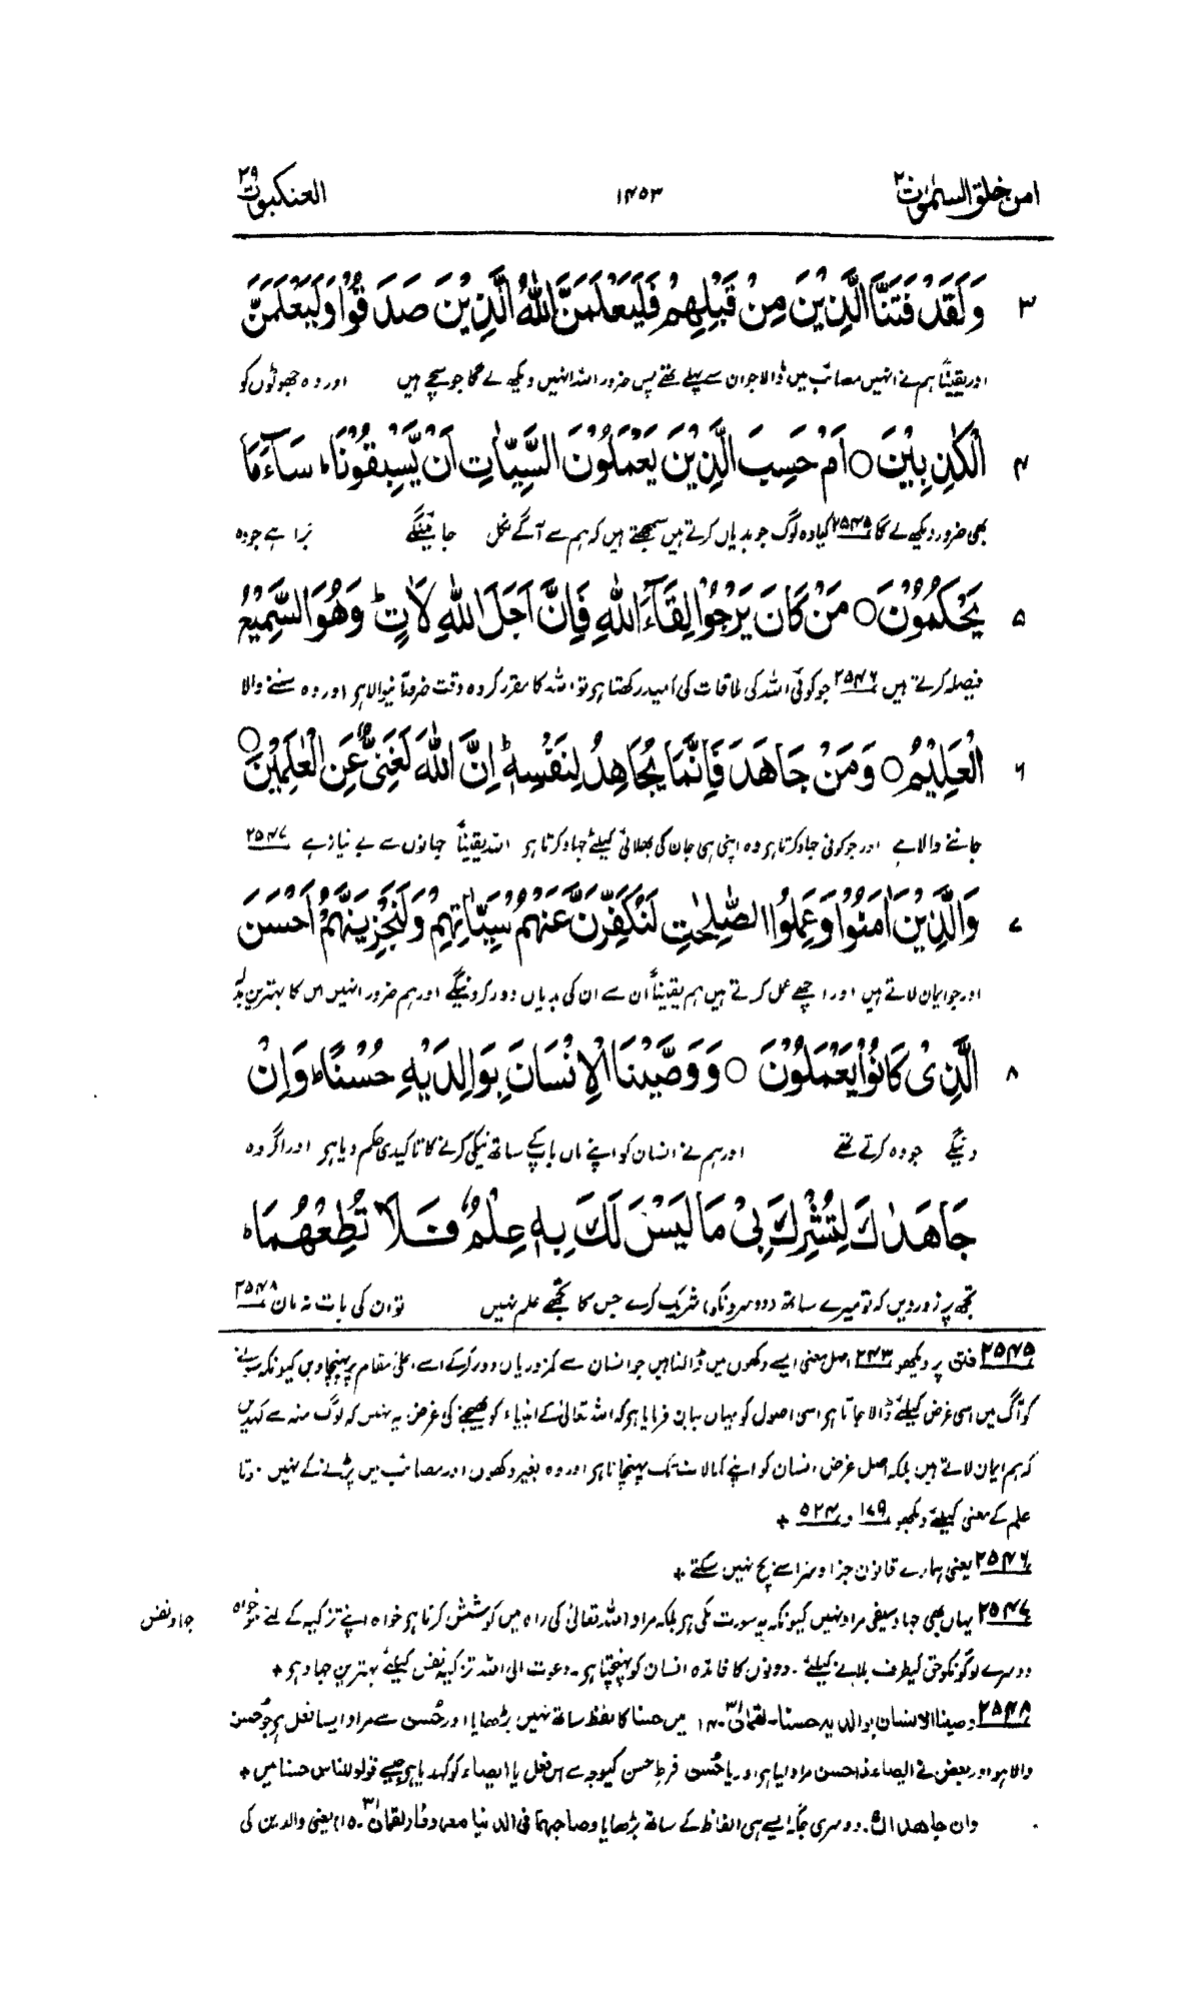 امن خلق السمٰوٰت ۲۰
۱۴۵۳
العنکبوت ۲۹
۳ وَلَقَدْ فَتَنَّا الَّذِيْنَ مِنْ قَبْلِهِمْ فَلَيَعْلَمَنَّ اللّٰهُ الَّذِيْنَ صَدَقُوْا وَلَيَعْلَمَنَّ
اور یقیناً ہم نے انہیں مصائب میں ڈالا جو ان سے پہلے تھے پس ضرور اللہ انہیں دیکھ لے گا جو سچے ہیں اور وہ جھوٹوں کو
۴ الْكٰذِبِيْنَ ○ اَمْ حَسِبَ الَّذِيْنَ يَعْمَلُوْنَ السَّيِّاٰتِ اَنْ يَّسْبِقُوْنَا ؕ سَآءَ مَا
بھی ضرور دیکھ لے گا ۲۵۴۵ کیا وہ لوگ جو بدیاں کرتے ہیں سمجھتے ہیں کہ ہم سے آگے نکل جائینگے بُرا ہے جو وہ
۵ يَحْكُمُوْنَ ○ مَنْ كَانَ يَرْجُوْا لِقَآءَ اللّٰهِ فَاِنَّ اَجَلَ اللّٰهِ لَاٰتٍ ؕ وَهُوَ السَّمِيْعُ
فیصلہ کرتے ہیں ۲۵۴۶ جو کوئی اللہ کی ملاقات کی اُمید رکھتا ہو تو اللہ کا مقرر کردہ وقت ضرور آنیوالا ہو اور وہ سننے والا
۶ الْعَلِيْمُ ○ وَمَنْ جَاهَدَ فَاِنَّمَا يُجَاهِدُ لِنَفْسِهٖ ؕ اِنَّ اللّٰهَ لَغَنِيٌّ عَنِ الْعٰلَمِيْنَ ○
جاننے والا ہے اور جو کوئی جہاد کرتا ہو وہ اپنی ہی جان کی بھلائی کیلئے جہاد کرتا ہو اللہ یقیناً جہانوں سے بے نیاز ہے ۲۵۴۷
۷ وَالَّذِيْنَ اٰمَنُوْا وَعَمِلُوا الصّٰلِحٰتِ لَنُكَفِّرَنَّ عَنْهُمْ سَيِّاٰتِهِمْ وَلَنَجْزِيَنَّهُمْ اَحْسَنَ
اور جو ایمان لاتے ہیں اور اچھے عمل کرتے ہیں ہم یقیناً اُن سے ان کی بدیاں دور کرینگے اور ہم ضرور انہیں اس کا بہترین بدلہ
الَّذِيْ كَانُوْا يَعْمَلُوْنَ ○ وَوَصَّيْنَا الْاِنْسَانَ بِوَالِدَيْهِ حُسْنًا ؕ وَاِنْ ۸
دینگے جو وہ کرتے تھے اور ہم نے انسان کو اپنے ماں باپ کے ساتھ نیکی کرنے کا تاکیدی حکم دیا ہو اور اگر وہ
جَاهَدٰكَ لِتُشْرِكَ بِيْ مَا لَيْسَ لَكَ بِهٖ عِلْمٌ فَلَا تُطِعْهُمَا ؕ
تجھ پر زور دیں کہ تو میرے ساتھ دوسروں کو شریک کرے جس کا تجھے علم نہیں تو ان کی بات نہ مان ۲۵۴۸
۲۵۴۵ فتن پر دیکھو ۲۴۳ اصل معنی ایسے دکھوں میں ڈالنا ہیں جو انسان سے کمزوریاں دور کر کے اسے اعلیٰ مقام پر پہنچا دیں کیونکہ سونے
کو آگ میں اسی غرض کیلئے ڈالا جاتا ہو اسی اصول کو یہاں بیان فرمایا ہو کہ اللہ تعالیٰ کے انبیاء کو بھیجنے کی غرض یہ نہیں کہ لوگ منہ سے کہدیں
کہ ہم ایمان لاتے ہیں بلکہ اصل غرض انسان کو اپنے کمالات تک پہنچانا ہو اور وہ بغیر دکھوں اور مصائب میں پڑنے کے نہیں ہوتا
علم کے معنی کیلئے دیکھو ۱۷۹ و ۵۲۴ +
۲۵۴۶ یعنی ہمارے قانون جزا و سزا سے بچ نہیں سکتے +
۲۵۴۷ یہاں بھی جہاد سیفی مراد نہیں کیونکہ یہ سورت مکی ہو بلکہ مراد اللہ تعالیٰ کی راہ میں کوشش کرنا ہو خواہ اپنے تزکیہ کے لئے ہو خواہ
جہاد نفس
دوسرے لوگونکو حق کیطرف بلانے کیلئے۔ دونوں کا فائدہ انسان کو پہنچتا ہو۔ دعوت الی اللہ تزکیۂ نفس کیلئے بہترین جہاد ہو +
۲۵۴۸ وصینا الانسان بوالدیہ حسنا۔ لقمان ۳۱۔ ۱۴ میں حسنا کا لفظ ساتھ نہیں بڑھایا اور حُسن سے مراد ایسا فعل ہو جو حُسن
والا ہو اور بعض نے ایصاء ذا حسن مراد لیا ہو اور یا حُسن فرط حسن کیوجہ سے اس فعل یا ایصاء کو کہدیا ہو جیسے قولوا للناس حسنا میں +
وان جاهداك۔ دوسری جگہ ایسے ہی الفاظ کے ساتھ بڑھایا وصاحبهما فی الدنیا معروفا (لقمان ۳۱۔ ۱۵) یعنی والدین کی